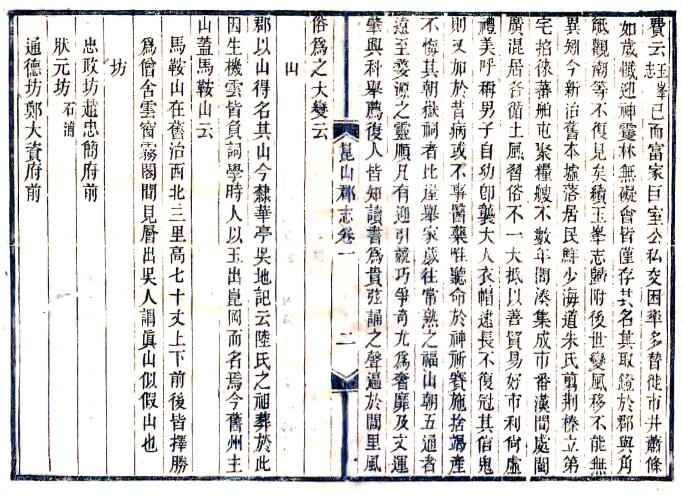 費云玉峯志已而富家巨室公私交困率多替徙市井蕭條
如歲懺迎神靈林無礙會皆僅存其名莫取證於郡與角
觝觀南等不復見矣續玉峯志歸附後世變風移不能無
異矧今新治舊本墟落居民鮮少海道朱氏翦荆榛立第
宅招徠蕃舶屯聚糧艘不數年間湊集成市番漢間處閩
廣混居各循土風習俗不一大抵以善貿易好市利尚虛
禮美呼稱男子自幼卽襲大人衣帽逮長不復冠其信鬼
則又加於昔病或不事醫藥唯聽命於神祈賽施捨竭產
不悔其朝嶽祠者比屋舉家歲往常熟之福山朝五通者
遠至婺源之靈順凡有迎引競巧爭奇尤爲奢靡及文運
肇興科舉薦復人皆知讀書爲貴弦誦之聲遍於閭里風
崑山郡志卷一
二
俗爲之大變云
山
郡以山得名其山今隸華亭吳地記云陸氏之祖葬於此
因生機雲皆負詞學時人以玉出崑岡而名焉今舊州主
山蓋馬鞍山云
馬鞍山在舊治西北三里高七十丈上下前後皆擇勝
爲僧舍雲窗霧閣間見層出吳人謂眞山似假山也
坊
忠政坊趙忠簡府前
狀元坊石浦
通德坊鄭大資府前